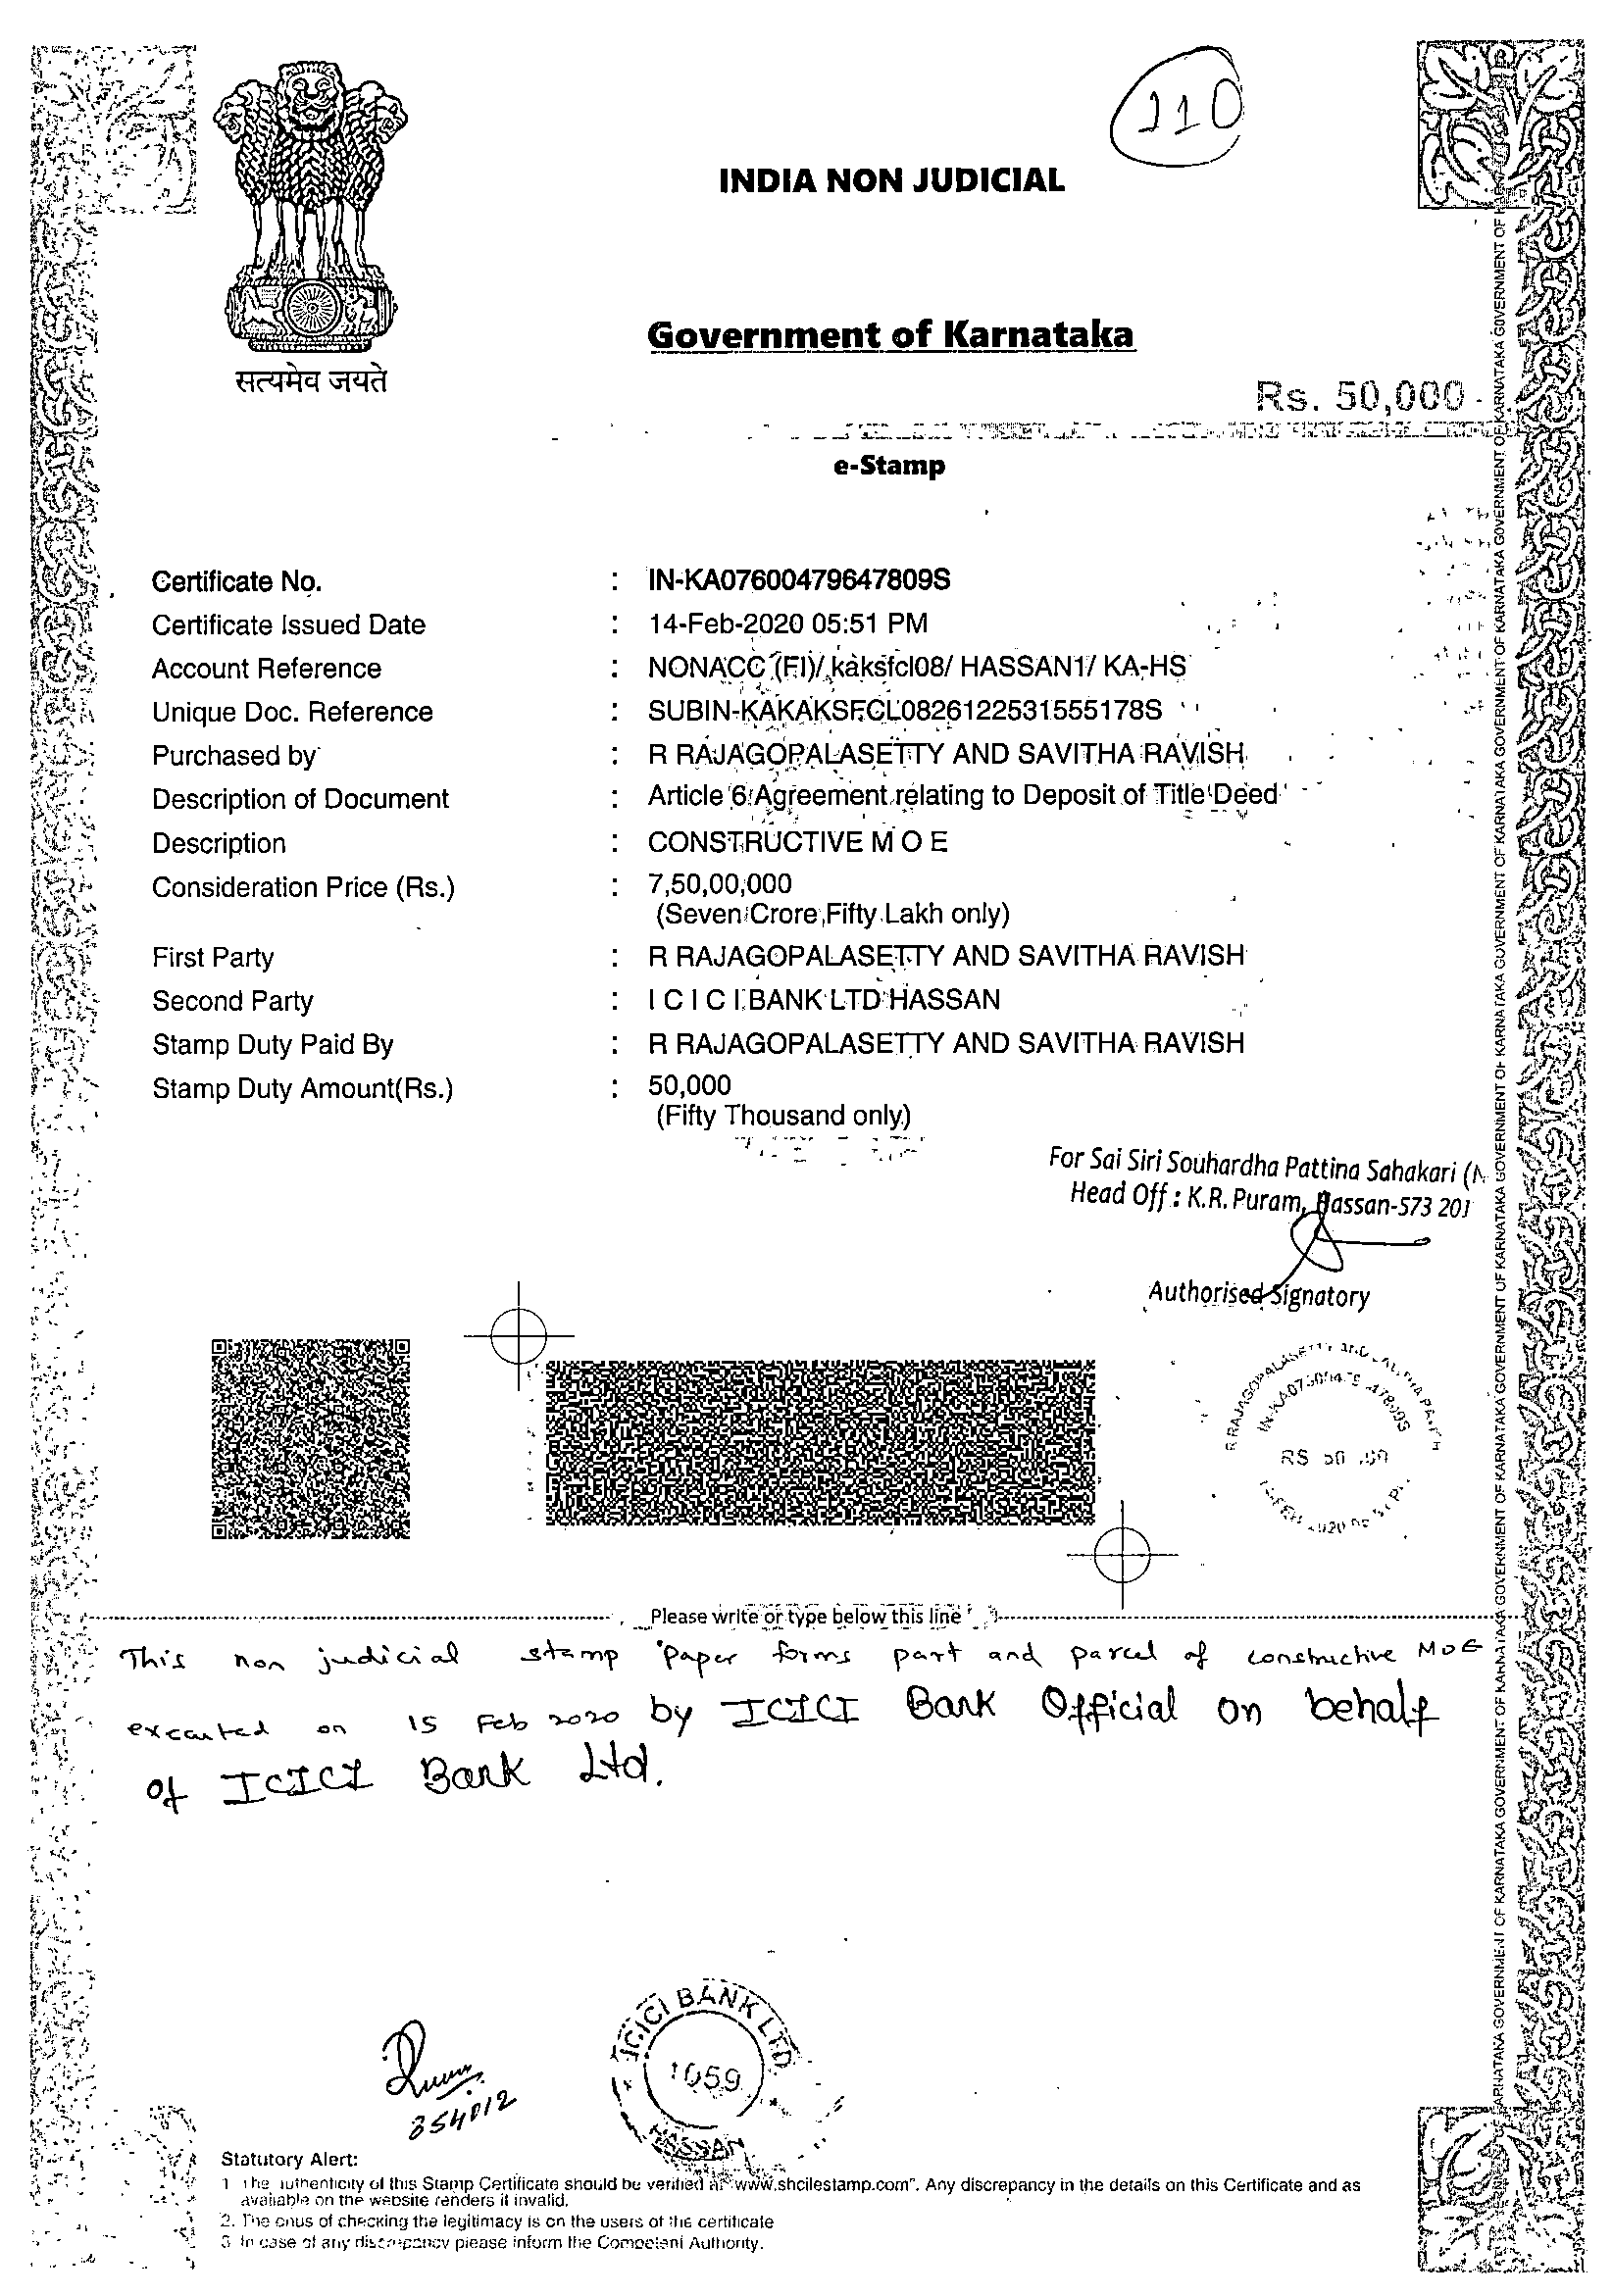 110
INDIA NON JUDICIAL
Government of Karnataka
सत्यमेव जयते
Rs. 50,000
e-Stamp
Certificate No. : IN-KA07600479647809S
Certificate Issued Date : 14-Feb-2020 05:51 PM
Account Reference : NONACC (FI)/ kaksfcl08/ HASSAN1/ KA-HS
Unique Doc. Reference : SUBIN-KAKAKSFCL0826122531555178S
Purchased by : R RAJAGOPALASETTY AND SAVITHA RAVISH
Description of Document : Article 6 Agreement relating to Deposit of Title Deed
Description : CONSTRUCTIVE M O E
Consideration Price (Rs.) : 7,50,00,000
(Seven Crore Fifty Lakh only)
First Party : R RAJAGOPALASETTY AND SAVITHA RAVISH
Second Party : I C I C I BANK LTD HASSAN
Stamp Duty Paid By : R RAJAGOPALASETTY AND SAVITHA RAVISH
Stamp Duty Amount(Rs.) : 50,000
(Fifty Thousand only)
For Sai Siri Souhardha Pattina Sahakari
Head Off : K.R. Puram, Hassan-573 201
Authorised Signatory
Please write or type below this line
This non judicial stamp Paper forms part and parcel of constructive MOE
excauted on 15 Feb 2020 by ICICI Bank Official on behalf
of ICICI Bank Ltd.
ICICI BANK LTD
1059
HASSAN
354012
Statutory Alert:
1 The authenticity of this Stamp Certificate should be verified at "www.shcilestamp.com". Any discrepancy in the details on this Certificate and as
available on the website renders it invalid.
2. The onus of checking the legitimacy is on the users of the certificate
3 In case of any discrepancy please inform the Competent Authority.